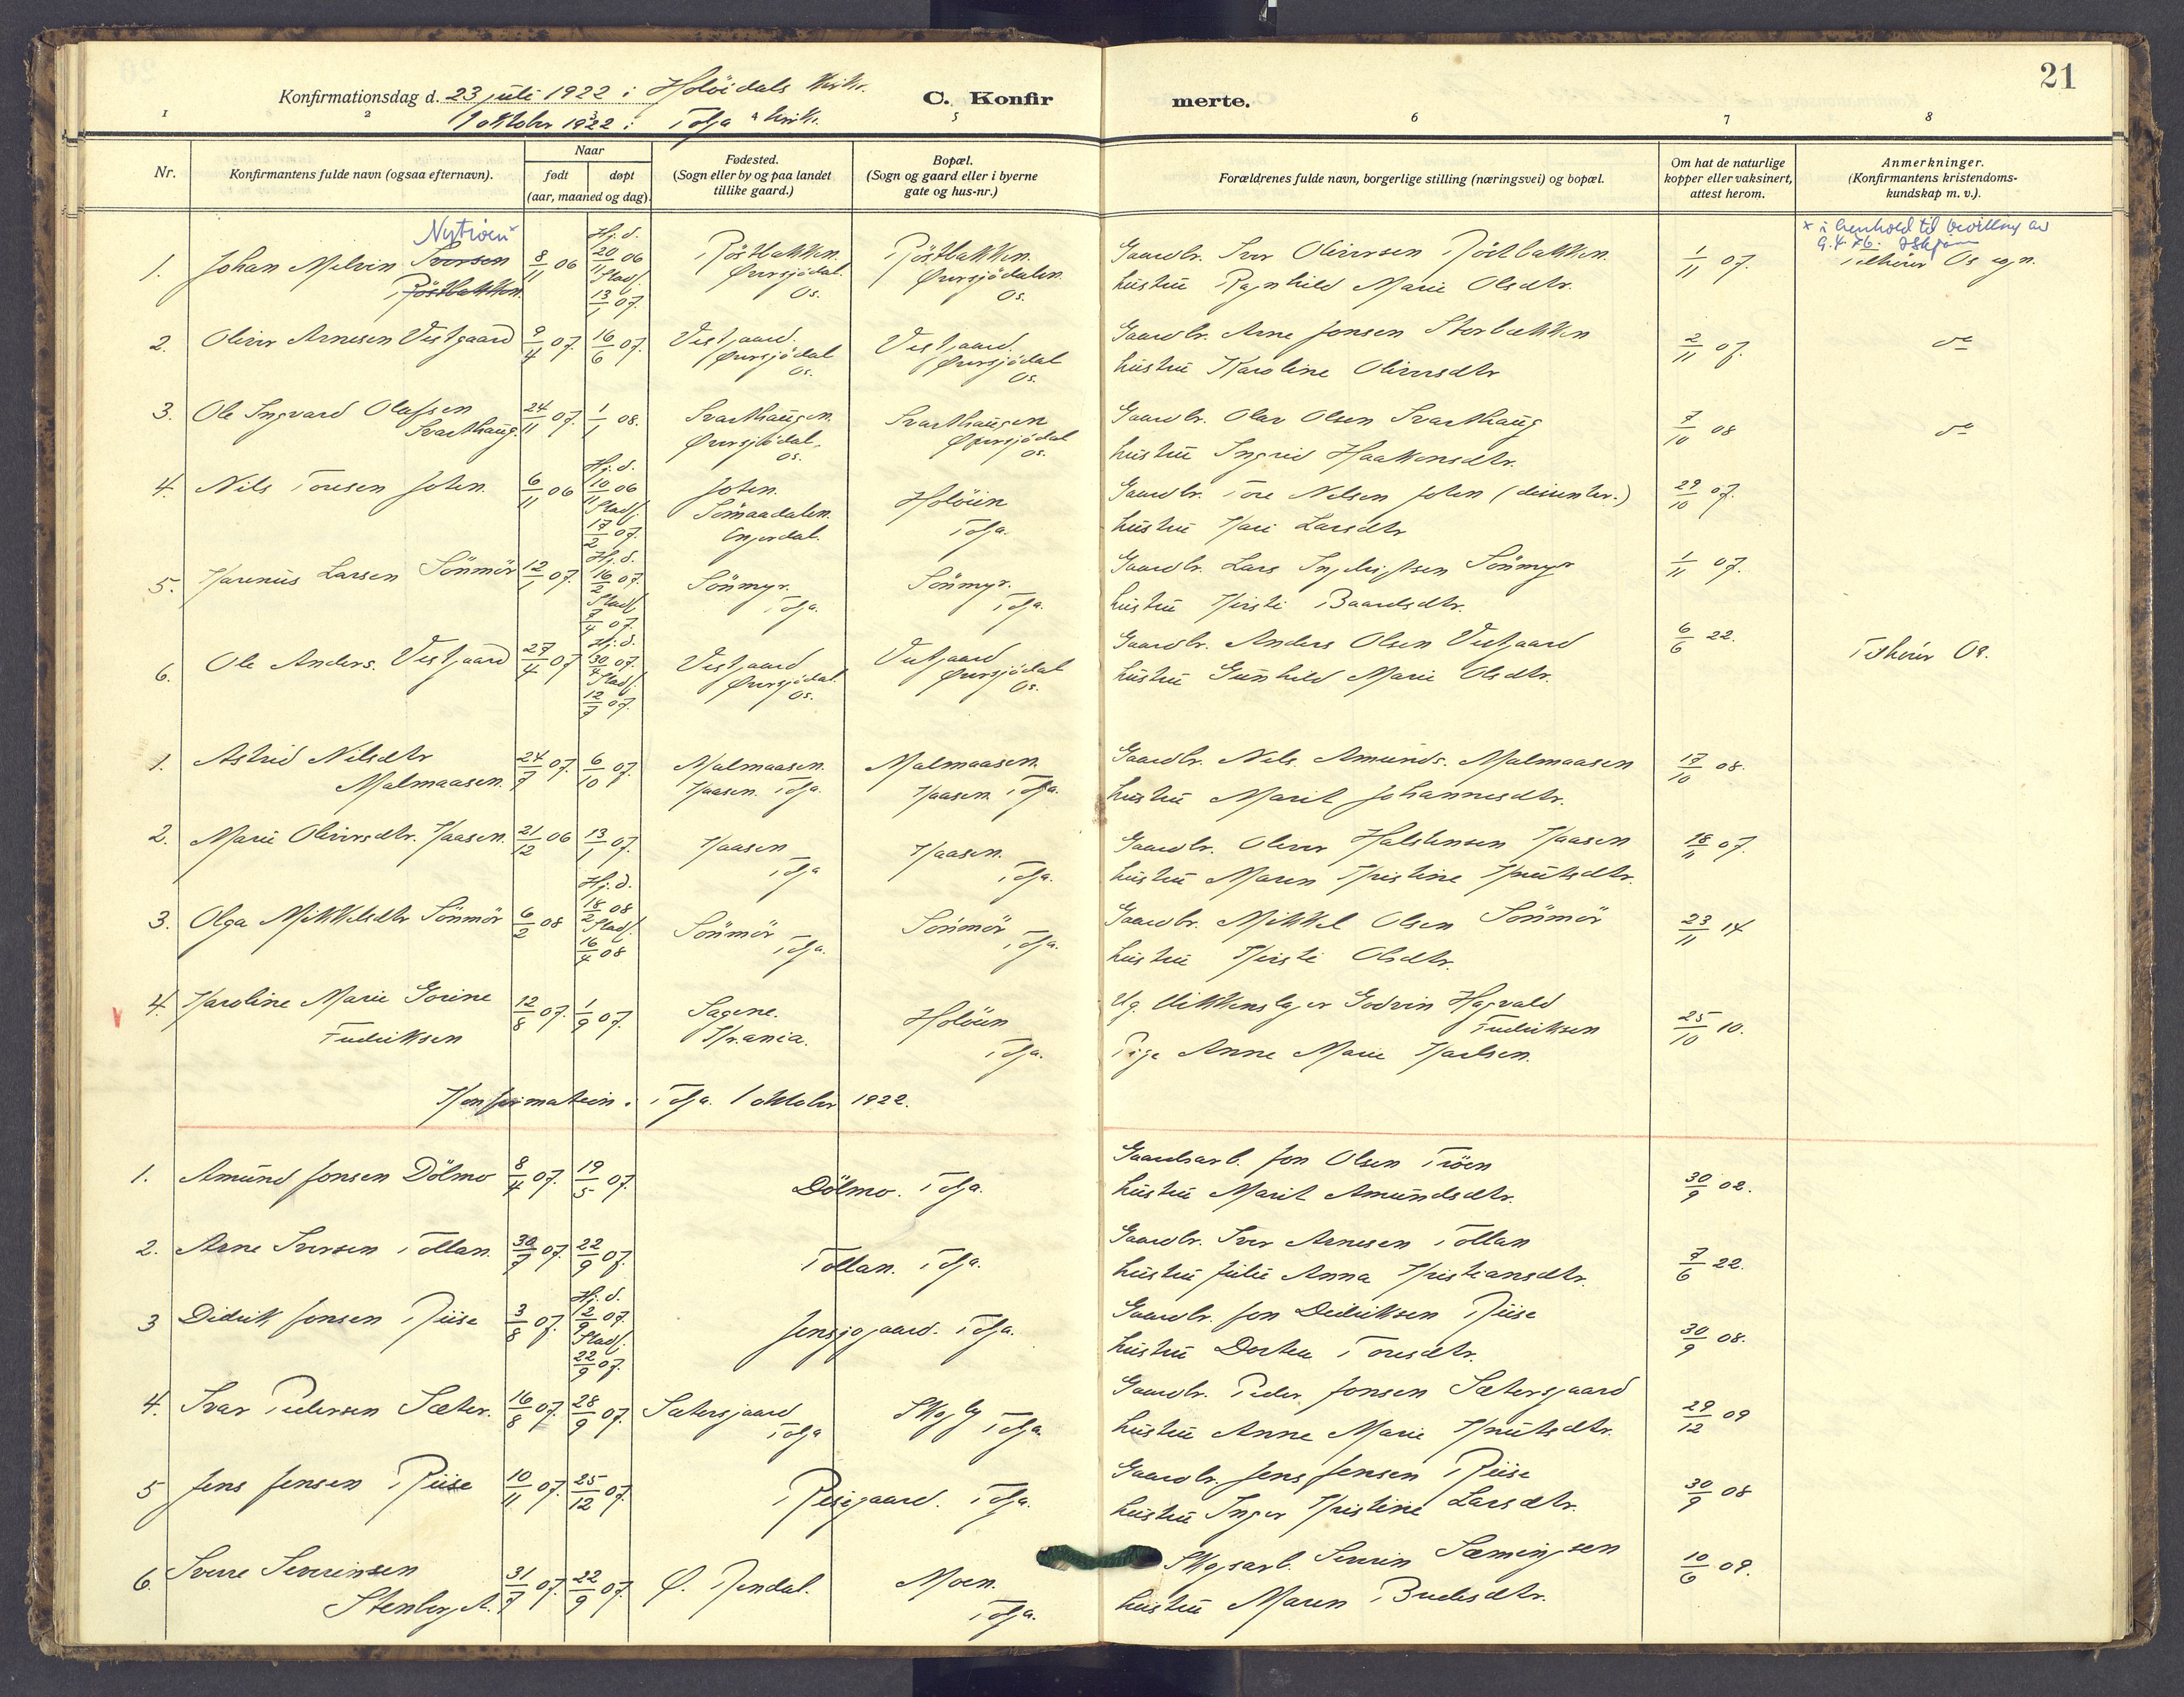 21
Konfirmationsdag d. 23 juli 1922 i Holöidals kirke.
1 oktober 1922 i Tolga kirke.
C. Konfirmerte.
1 2 3 4 5 6 7 8
Nr.
Konfirmantens fulde navn (ogsaa efternavn).
Naar
født
døpt
(aar, maaned og dag).
Fødested.
(Sogn eller by og paa landet
tillike gaard.)
Bopæl.
(Sogn og gaard eller i byerne
gate og hus-nr.)
Forældrenes fulde navn, borgerlige stilling (næringsvei) og bopæl.
Om hat de naturlige
kopper eller vaksinert,
attest herom.
Anmerkninger.
(Konfirmantens kristendoms-
kundskap m. v.).
1. Johan Melvin Iversen Nytrøen x
Röstbakken.
8/11 06
Hj. d. 20/11 06 Stadf. 13/1 07.
Röstbakken. Øversjödal. Os.
Röstbakken. Øversjödalen. Os.
Gaardbr. Iver Oliversen Röstbakken.
hustru Ragnhild Marie Olsdtr.
1/11 07.
x i henhold til bevilling av
9.4.26.
Tilhører Os sogn.
2. Oliver Arnesen Vestgaard
9/4 07. 16/6 07.
Vestgaard. Øversjödal Os.
Vestgaard. Øversjödal Os.
Gaardbr. Arne Jonsen Storbækken
hustru Karoline Oliversdtr
2/11 07.
do
3. Ole Ingvard Olafsen
Svarthaug.
24/11 07. 1/1 08.
Svarthaugen. Øversjödal. Os.
Svarthaugen Øversjödal Os.
Gaardbr. Olav Olsen Svarthaug
hustru Ingrid Haakensdtr.
7/10 08
do
4. Nils Toresen Joten.
6/11 06
Hj. d. 10/11 06 Stadf. 17/2 07.
Joten. Sömaadalen. Engerdal.
Holöien Tolga.
Gaardbr. Tore Nilsen Joten (dissenter.)
hustru Kari Larsdtr
29/10 07.
5. Karenius Larsen Sönmör
12/1 07.
Hj. d. 16/2 07. Stadf. 7/4 07.
Sönmyr. Tolga.
Sönmyr. Tolga.
Gaardbr. Lars Ingebrigtsen Sönmyr
hustru Kirsti Baardsdtr.
1/11 07.
6. Ole Anders. Vestgaard
27/4 07
Hj. d. 30/4 07. Stadf. 12/7 07.
Vestgaard Øversjödal. Os.
Vestgaard Øversjödal Os.
Gaardbr. Anders Olsen Vestgaard
hustru Gunhild Marie Olsdtr.
6/6 22.
Tilhører Os.
1. Astrid Nilsdtr
Malmaasen.
24/7 07. 6/10 07.
Malmaasen. Kaasen. Tolga.
Malmaasen. Kaasen. Tolga.
Gaardbr. Nils Amunds. Malmaasen
hustru Marit Johannesdtr.
17/10 08.
2. Marie Oliversdtr. Kaasen.
21/12 06 13/1 07.
Kaasen Tolga
Kaasen. Tolga.
Gaardbr. Oliver Halstensen Kaasen
hustru Maren Kristine Knutsdtr.
18/11 07.
3. Olga Mikkelsdtr Sönmör
6/2 08
Hj. d. 18/2 08 Stadf. 16/4 08
Sönmör Tolga.
Sönmör Tolga.
Gaardbr. Mikkel Olsen Sönmör
hustru Kirsti Olsdtr.
23/11 14
V 4. Karoline Marie Gorine
Fredriksen
12/8 07. 1/9 07.
Sagene. Kr.ania.
Holöien Tolga.
Ug. Godvin Hagvald
Fredriksen
Pige Anne Marie Karlsen.
25/10 10.
Konfirmation i Tolga. 1 oktober 1922.
1. Amund Jonsen Dölmo
8/4 07. 19/5 07.
Dölmo. Tolga.
Gaardsarb. Jon Olsen Trøen
hustru Marit Amundsdtr.
30/9 02.
2. Arne Iversen Tollan.
30/7 07. 22/9 07.
Tollan. Tolga.
Gaardbr. Iver Arnesen Tollan
hustru Julie Anna Kristiansdtr.
7/6 22.
3 Didrik Jonsen Riise
3/8 07.
Hj. d. 12/9 07. Stadf. 22/9 07.
Jensjogaard. Tolga.
Gaardbr. Jon Didriksen Riise
hustru Dortea Toresdtr.
30/9 08.
4. Ivar Pedersen Sæter.
16/8 07. 28/9 07.
Sætersgaard Tolga
Skogly Tolga.
Gaardbr. Peder Jonsen Sætersgaard
hustru Anne Marie Knutsdtr.
29/12 09
5 Jens Jensen Riise
10/11 07. 25/12 07.
Riisgaard. Tolga.
Gaardbr. Jens Jensen Riise
hustru Inger Kristine Larsdtr.
30/9 08
6. Sverre Severinsen
Stenberg
31/7 07. 22/9 07.
Ø. Rendal.
Moen. Tolga.
Skogsarb. Severin Sæmingsen
hustru Maren Bredesdtr.
10/6 09.